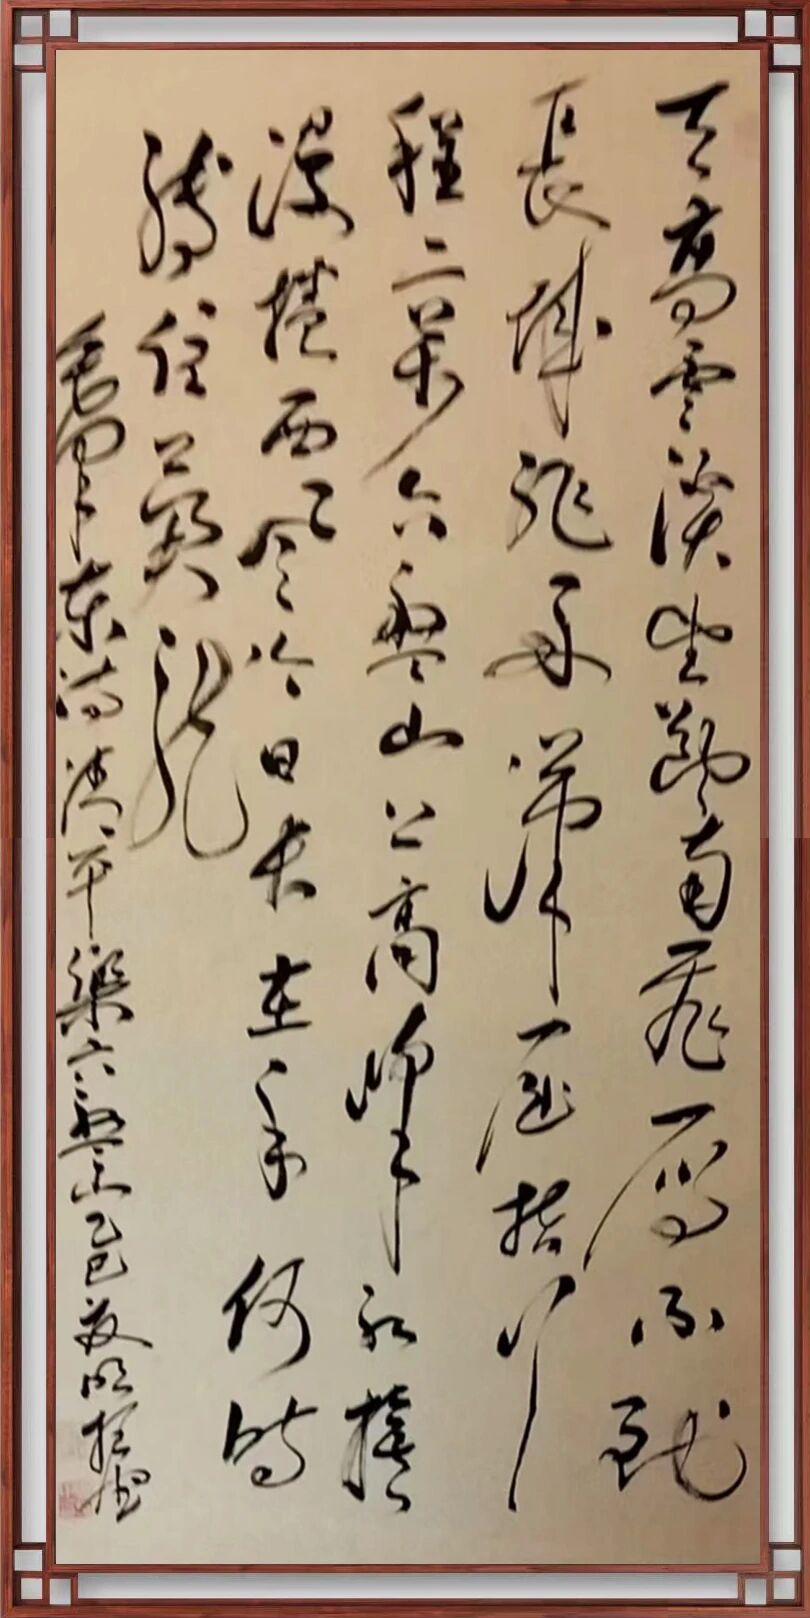 天高雲淡望斷南飛雁不到
長城非好漢屈指行
程二萬六盤山上高峰紅旗
漫捲西風今日长在手何時
縛住蒼龍
毛澤東詩清平樂六盤山乙巳夏明書